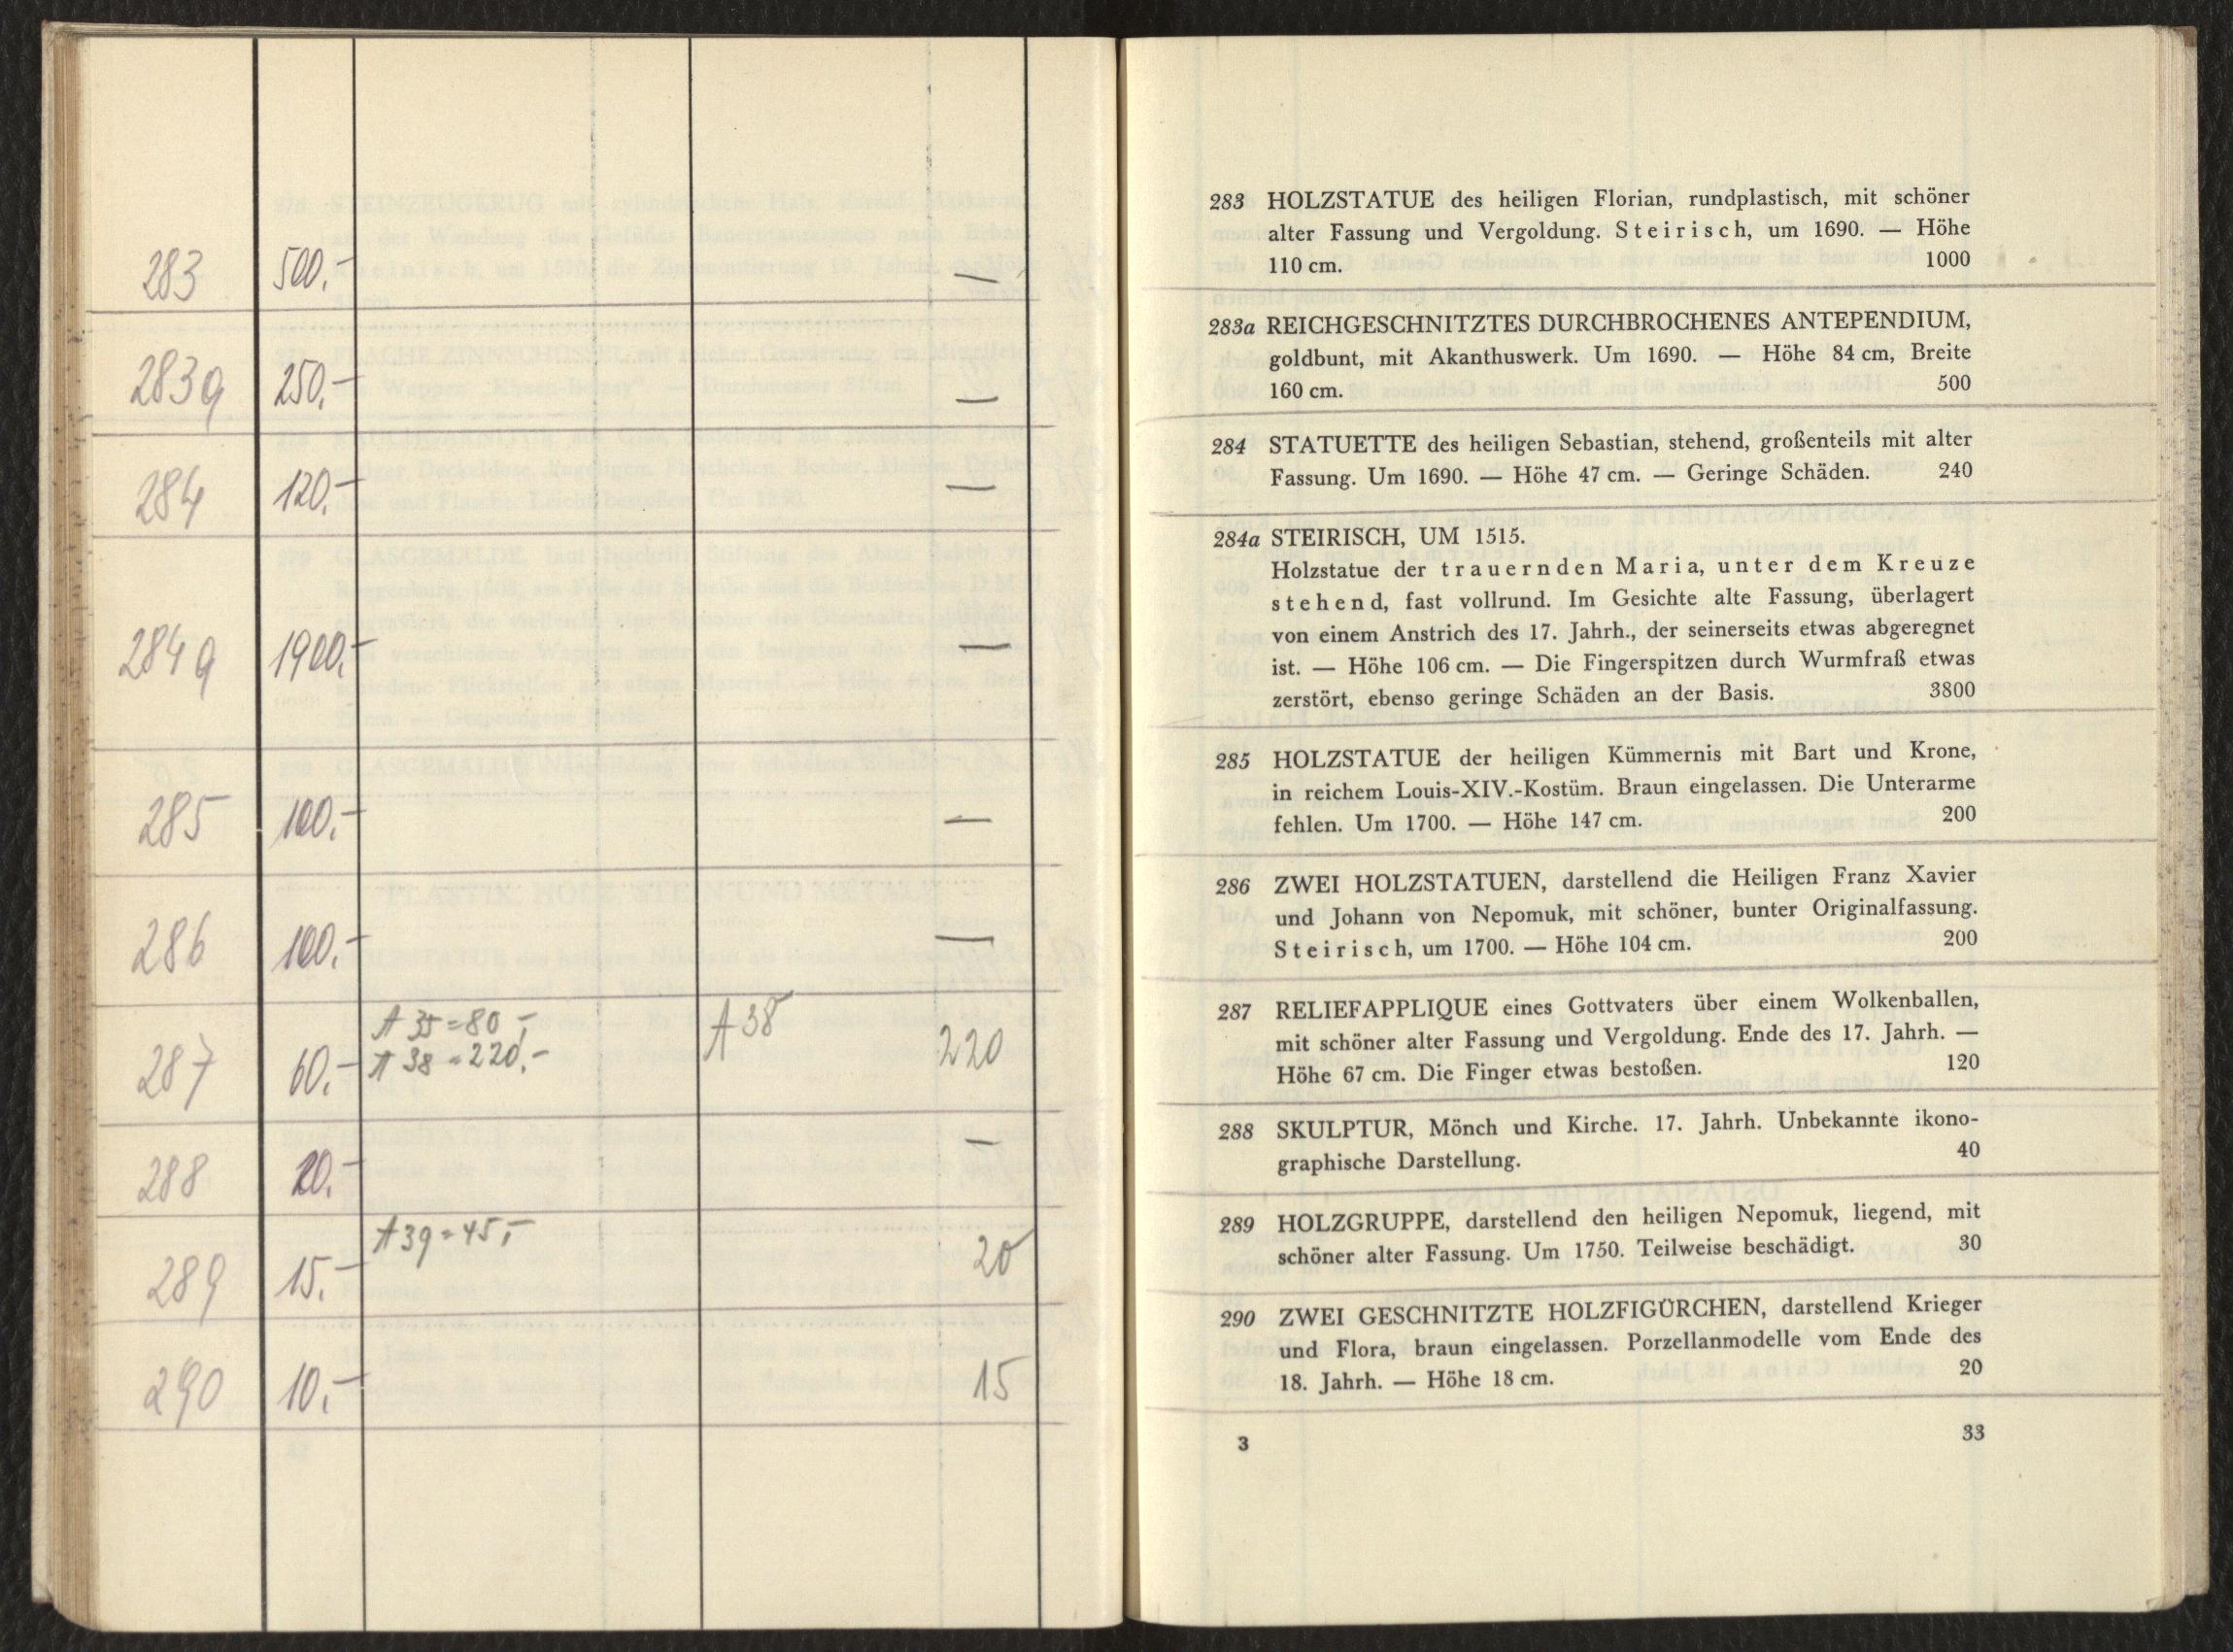 283 500.- —
283a 250.- —
284 120.- —
284a 1900.- —
285 100.- —
286 100.- —
A 35 = 80 -
287 60.- A 38 = 220.- A 38 220
288 20.- —
A 39 = 45,-
289 15.- 20
290 10.- 15
283 HOLZSTATUE des heiligen Florian, rundplastisch, mit schöner
alter Fassung und Vergoldung. Steirisch, um 1690. — Höhe
110 cm. 1000
283a REICHGESCHNITZTES DURCHBROCHENES ANTEPENDIUM,
goldbunt, mit Akanthuswerk. Um 1690. — Höhe 84 cm, Breite
160 cm. 500
284 STATUETTE des heiligen Sebastian, stehend, großenteils mit alter
Fassung. Um 1690. — Höhe 47 cm. — Geringe Schäden. 240
284a STEIRISCH, UM 1515.
Holzstatue der trauernden Maria, unter dem Kreuze
stehend, fast vollrund. Im Gesichte alte Fassung, überlagert
von einem Anstrich des 17. Jahrh., der seinerseits etwas abgeregnet
ist. — Höhe 106 cm. — Die Fingerspitzen durch Wurmfraß etwas
zerstört, ebenso geringe Schäden an der Basis. 3800
285 HOLZSTATUE der heiligen Kümmernis mit Bart und Krone,
in reichem Louis-XIV.-Kostüm. Braun eingelassen. Die Unterarme
fehlen. Um 1700. — Höhe 147 cm. 200
286 ZWEI HOLZSTATUEN, darstellend die Heiligen Franz Xavier
und Johann von Nepomuk, mit schöner, bunter Originalfassung.
Steirisch, um 1700. — Höhe 104 cm. 200
287 RELIEFAPPLIQUE eines Gottvaters über einem Wolkenballen,
mit schöner alter Fassung und Vergoldung. Ende des 17. Jahrh. —
Höhe 67 cm. Die Finger etwas bestoßen. 120
288 SKULPTUR, Mönch und Kirche. 17. Jahrh. Unbekannte ikono-
graphische Darstellung. 40
289 HOLZGRUPPE, darstellend den heiligen Nepomuk, liegend, mit
schöner alter Fassung. Um 1750. Teilweise beschädigt. 30
290 ZWEI GESCHNITZTE HOLZFIGÜRCHEN, darstellend Krieger
und Flora, braun eingelassen. Porzellanmodelle vom Ende des
18. Jahrh. — Höhe 18 cm. 20
3 33